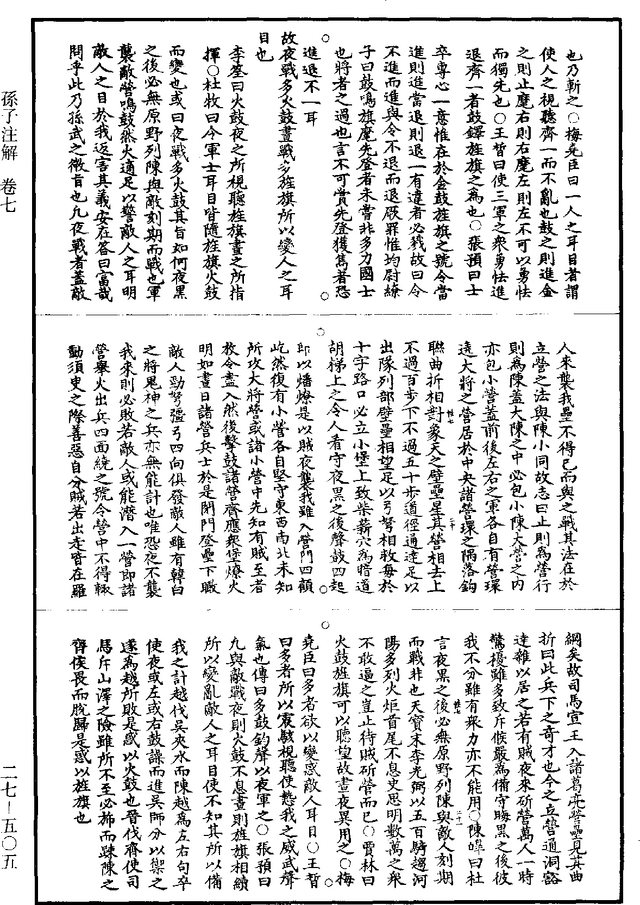 孫子注解　卷七
也乃斬之○梅堯臣曰一人之耳目者謂
使人之視聽齊一而不亂也鼓之則進金
之則止麾右則右麾左則左不可以勇怯
而獨先也○王晳曰使三軍之衆勇怯進
退齊一者鼓鐸旌旗之爲也○張預曰士
卒專心一意惟在於金鼓旌旗之號令當
進則進當退則退一有違者必戮故曰令
不進而進與令不退而退厥罪惟均尉繚
子曰鼓鳴旗麾先登者未嘗非多力國士
也將者之過也言不可賞先登獲雋者恐
進退不一耳
故夜戰多火鼓晝戰多旌旗所以變人之耳
目也
李筌曰火鼓夜之所視聽旌旗晝之所指
揮○杜牧曰令軍士耳目皆隨旌旗火鼓
而變也或曰夜戰多火鼓其旨如何夜黑
之後必無原野列陳與敵刻期而戰也軍
襲敵營鳴鼓然火適足以警敵人之耳明
敵人之目於我返害其義安在荅曰富哉
問乎此乃孫武之微旨也凡夜戰者蓋敵
人來襲我壘不得已而與之戰其法在於
立營之法與陳小同故志曰止則爲營行
則爲陳蓋大陳之中必包小陳大營之内
亦包小營蓋前後左右之軍各自有營環
遶大將之營居於中央諸營環之隅落鉤
聯曲折相對象天之壁壘星其營相去上
不過百步下不過五十步道徑通達足以
出隊列部壁壘相望足以弓弩相救每於
十字路口必立小堡上致柴薪穴爲暗道
胡梯上之令人看守夜黑之後聲鼓四起
即以燔燎是以賊夜襲我雖入營門四顧
屹然復有小營各自堅守東西南北未知
所攻大將營或諸小營中先知有賊至者
放令盡入然後擊鼓諸營齊應衆堡燎火
明如晝日諸營兵士於是閉門登壘下瞰
敵人勁弩彊弓四向俱發敵人雖有韓白
之將鬼神之兵亦無能計也唯恐夜不襲
我來則必敗若敵人或能潛入一營即諸
營舉火出兵四面繞之號令營中不得輒
動須臾之際善惡自分賊若出走皆在羅
網矣故司馬宣王入諸葛亮營壘見其曲
折曰此天下之奇才也今之立營通洞豁
達雜以居之若有賊夜來斫營萬人一時
驚擾雖多致斥候嚴爲備守晦黑之後彼
我不分雖有衆力亦不能用○陳皥曰杜
言夜黑之後必無原野列陳與敵人刻期
而戰非也天寶末李光弼以五百騎趨河
陽多列火炬首尾不息史思明數萬之衆
不敢逼之豈止待賊斫營而已○賈林曰
火鼓旌旗可以聽望故晝夜異用之○梅
堯臣曰多者欲以變惑敵人耳目○王晳
曰多者所以震駭視聽使慹我之威武聲
氣也傳曰多鼓鈞聲以夜軍之○張預曰
凡與敵戰夜則火鼓不息晝則旌旗相續
所以變亂敵人之耳目使不知其所以備
我之計越伐吳夾水而陳越爲左右句卒
使夜或左或右鼓譟而進吳師分以禦之
遂爲越所敗是惑以火鼓也晉伐齊使司
馬斥山澤之險雖所不至必斾而疎陳之
齊侯畏而脱歸是惑以旌旗也
二七－五〇五